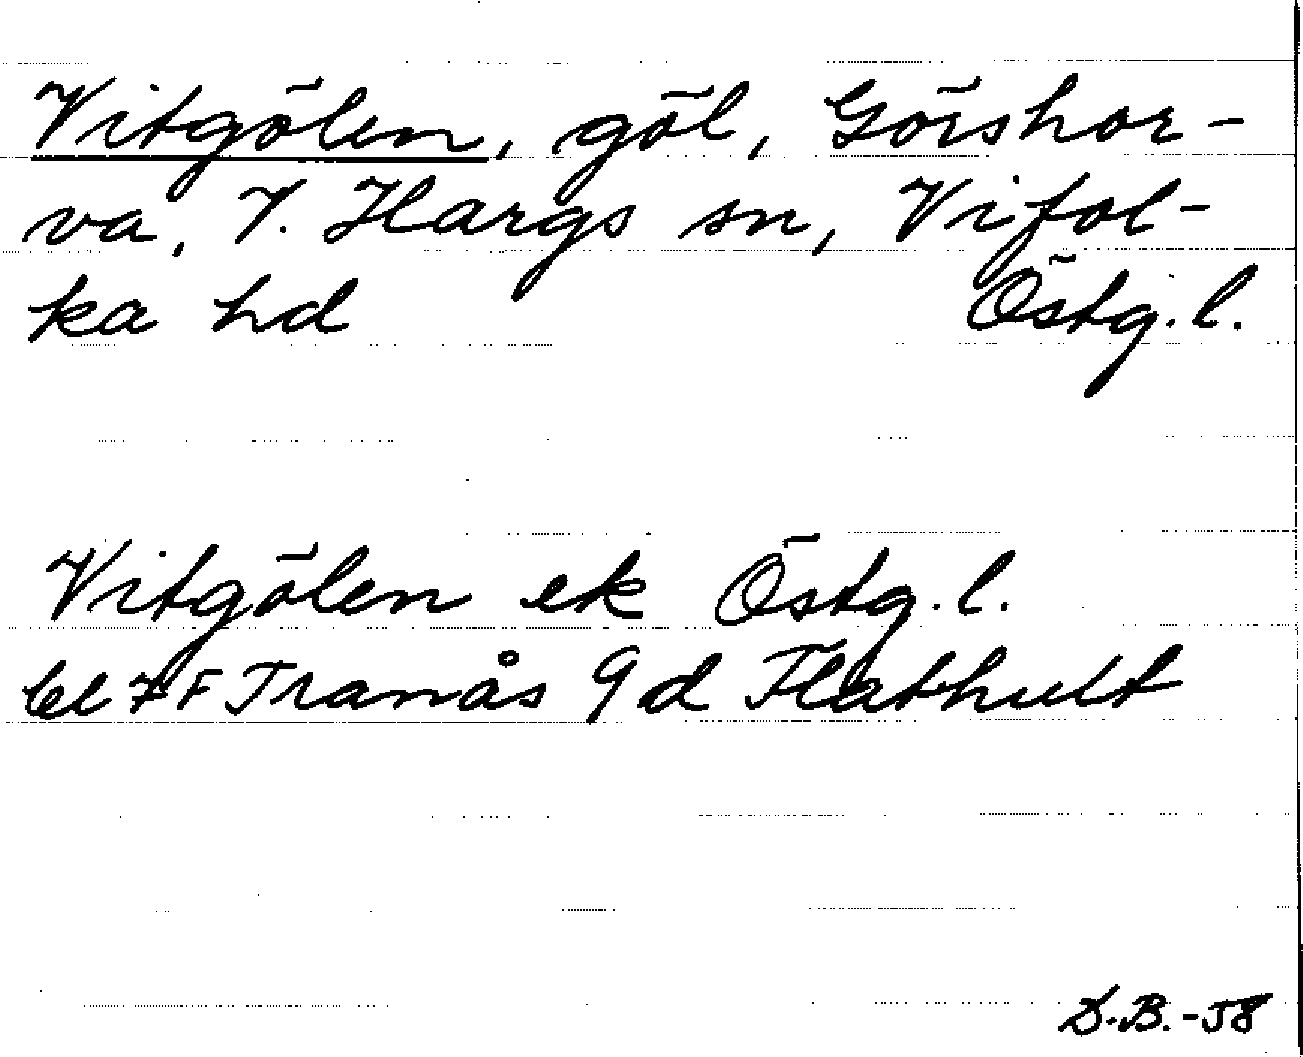 Vitgölen, göl, Görshor-
va, V. Hargs sn, Vifol-
ka hd Östg.l.
Vitgölen ek Östg.l.
bl 7F Tranås 9d Flathult
D.B.-58